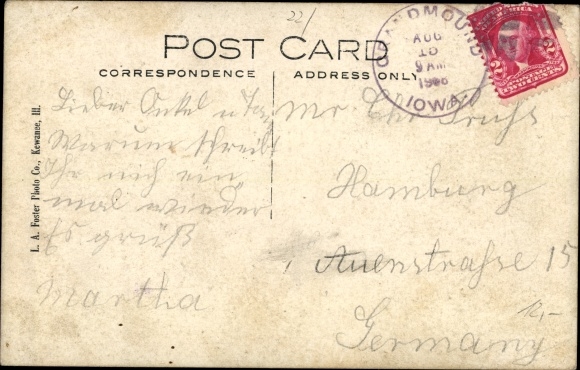 22/
POST CARD
CORRESPONDENCE
ADDRESS ONLY
GRANDMOUND
AUG
9 AM
IOWA
L. A. Foster Photo Co., Kewanee, Ill.
Lieber Onkel u
Warum schreibt
Ihr nich ein
mal wieder
Es grüß
Martha
Mr
Hamburg
Auenstrahse 15
Germany
12,-